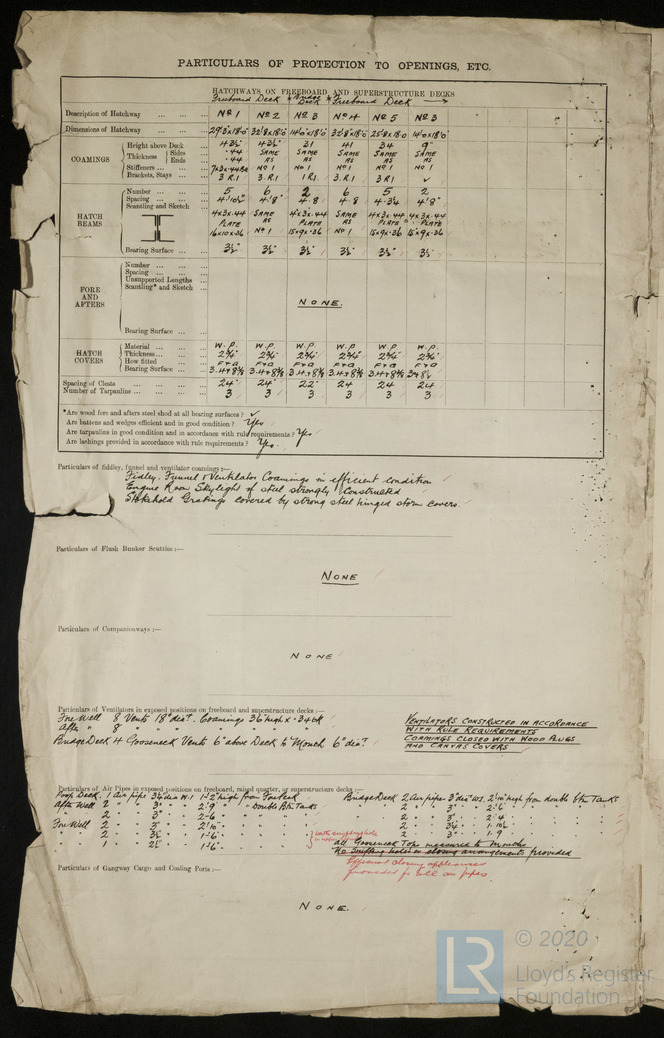 PARTICULARS OF PROTECTION TO OPENINGS, ETC.
HATCHWAYS ON FREEBOARD AND SUPERSTRUCTURE DECKS
Freeboard Deck Bridge Deck Freeboard Deck
Description of Hatchway Nº 1 Nº 2 Nº 3 Nº 4 Nº 5 Nº 3
Dimensions of Hatchway 29'3"x18'0 32'8x18'0 14'0x18'0 32'8x18'0 25'8x18'0 14'0x18'0
COAMINGS
Height above Deck 43½ 43½" 31 41 34 9"
Thickness Sides .44 SAME SAME SAME SAME SAME
Ends .44 AS AS AS AS AS
Stiffeners 7x3x.44 Nº 1 Nº 1 Nº 1 Nº 1 Nº 1
Brackets, Stays 3 R.1 3.R.1 1 R.1 3.R.1 3 R.1 ✓
HATCH BEAMS
Number 5 6 2 6 5 2
Spacing 4'10½" 4'8" 4.8 4.8 4.3¼ 4'8"
Scantling and Sketch 4x3x.44 SAME 4x3x.44 SAME 4x3x.44 4x3x.44
PLATE AS PLATE AS PLATE PLATE
16x10x.36 Nº 1 15x9x.36 Nº 1 15x9x.36 15x9x.36
Bearing Surface 3½" 3½ 3½" 3½ 3½" 3½
FORE AND AFTERS
Number
Spacing
Unsupported Lengths
Scantling* and Sketch
NONE.
Bearing Surface
HATCH COVERS
Material W.P. W.P. W.P. W.P. W.P. W.P.
Thickness 2¾" 2¾" 2¾" 2¾" 2¾" 2¾"
How fitted F&A F&A F&A F&A F&A F&A
Bearing Surface
Spacing of Cleats 24" 24" 22" 24 24 24
Number of Tarpaulins 3 3 3 3 3 3
*Are wood fore and afters steel shod at all bearing surfaces? ✓
Are battens and wedges efficient and in good condition? Yes
Are tarpaulins in good condition and in accordance with rule requirements? Yes
Are lashings provided in accordance with rule requirements? Yes.
Particulars of fiddley, funnel and ventilator coamings :—
Fidley, Funnel & Ventilator Coamings in efficient condition
Engine Room Skylight of steel strongly Constructed
Stokehold Gratings covered by strong steel hinged storm covers.
Particulars of Flush Bunker Scuttles :—
NONE
Particulars of Companionways :—
NONE
Particulars of Ventilators in exposed positions on freeboard and superstructure decks :—
Fore Well 8 Vents 18" diar. Coamings 36" high x .34 thk
After " 8 " " " " " "
Bridge Deck 4 Gooseneck Vents 6" above Deck to Mouth 6" diar.
VENTILATORS CONSTRUCTED IN ACCORDANCE
WITH RULE REQUIREMENTS
COAMINGS CLOSED WITH WOOD PLUGS
AND CANVAS COVERS
Particulars of Air Pipes in exposed positions on freeboard, raised quarter, or superstructure decks :—
Poop Deck. 1 Air pipe 3½ dia W.I 1'-2" high from Fore Peak
After Well 2 " " 3" " " 2'-9" " " Double Btm Tanks
" 2 " " 3" " " 2-6" " " "
Fore Well 2 " " 3" " " 2'10" " " "
" 2 " " 3½ " " 1-6" " " "
" 1 " " 2½ " " 1-6" " " "
Bridge Deck 2 Air pipes 3" dia W.I. 2'-10" high from double Btm Tanks
2 " " 3" " " 2'-6" " " "
2 " " 3" " " 2'4" " " "
2 " " 3¼" " " 1.10½ " " "
2 " " 3" " " 1-9 " " "
all Gooseneck Tops measured to Mouths
No Snifting holes or closing arrangements provided
Efficient closing appliances
provided for all air pipes.
Particulars of Gangway Cargo and Coaling Ports :—
NONE.
LR
© 2020
Lloyd's Register
Foundation